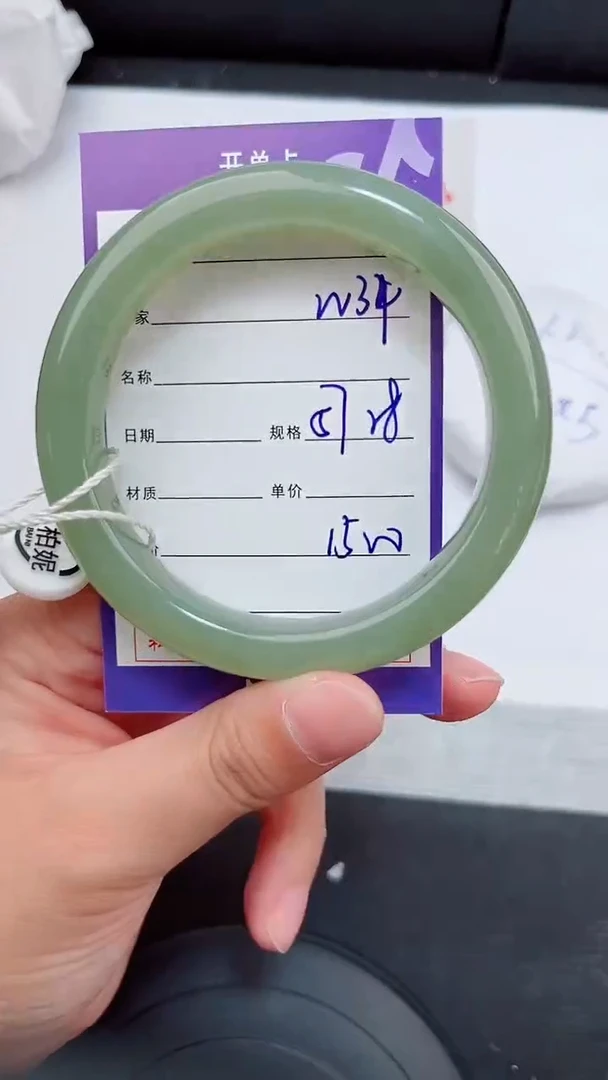 开单卡
家 W34
名称
日期 规格 57 28
材质 单价
价 1500
柏妮